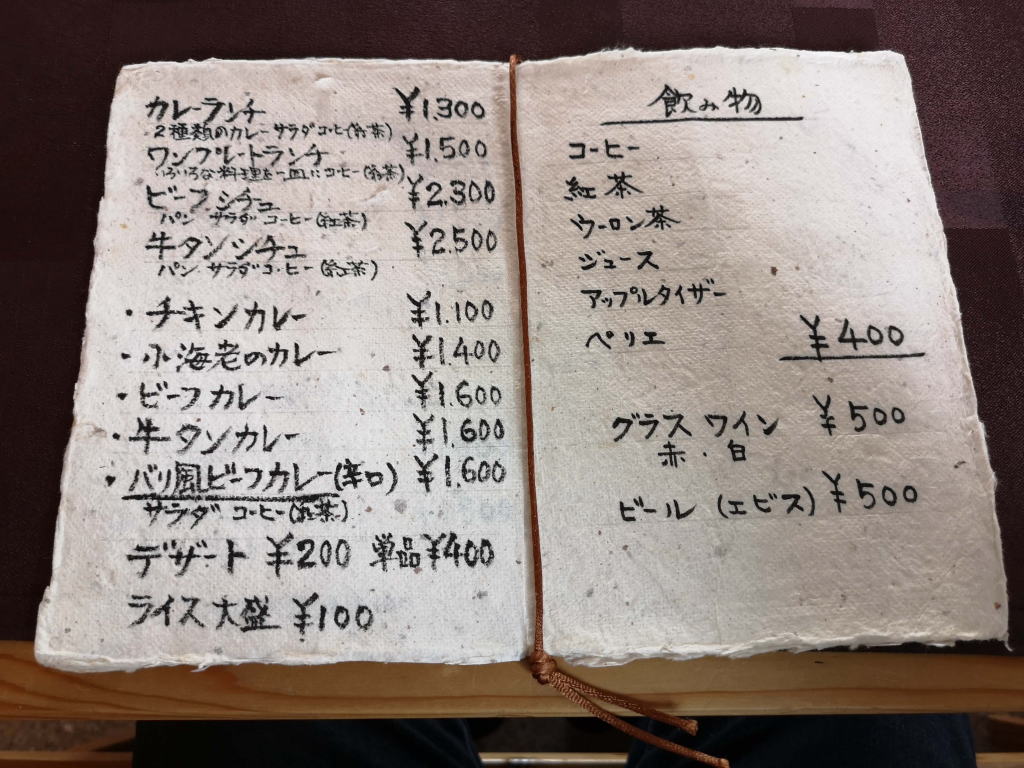 カレーランチ ¥1.300
2種類のカレー サラダ コーヒー(紅茶)
ワンプレートランチ ¥1.500
いろいろな料理を一皿に コーヒー(紅茶)
ビーフシチュー ¥2.300
パン サラダ コーヒー(紅茶)
牛タンシチュー ¥2.500
パン サラダ コーヒー(紅茶)
・チキンカレー ¥1.100
・小海老のカレー ¥1.400
・ビーフカレー ¥1.600
・牛タンカレー ¥1.600
・バリ風ビーフカレー(辛口) ¥1.600
サラダ コーヒー(紅茶)
デザート ¥200 単品¥400
ライス大盛 ¥100
飲み物
コーヒー
紅茶
ウーロン茶
ジュース
アップルタイザー
ペリエ ¥400
グラスワイン ¥500
赤・白
ビール(エビス) ¥500